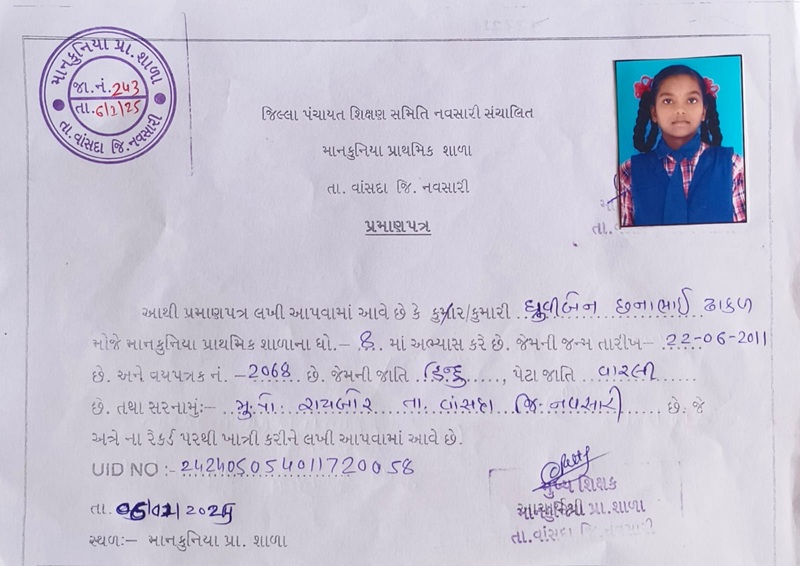 માનકુનિયા પ્રા. શાળા
જા. નં. 243
તા. 6/1/25
તા. વાંસદા જિ. નવસારી
જિલ્લા પંચાયત શિક્ષણ સમિતિ નવસારી સંચાલિત
માનકુનિયા પ્રાથમિક શાળા
તા. વાંસદા જિ. નવસારી
પ્રમાણપત્ર
આથી પ્રમાણપત્ર લખી આપવામાં આવે છે કે કુમાર/કુમારી ધ્રુવીબેન છનાભાઈ ઢાકળ
મોજે માનકુનિયા પ્રાથમિક શાળાના ધો.– 8 માં અભ્યાસ કરે છે. જેમની જન્મ તારીખ– 22-06-2011
છે. અને વયપત્રક નં. –2068 છે. જેમની જાતિ હિન્દુ, પેટા જાતિ વારલી
છે. તથા સરનામુંઃ– મુ.પો. રાયબોર તા. વાંસદા જિ. નવસારી છે. જે
અત્રે ના રેકર્ડ પરથી ખાત્રી કરીને લખી આપવામાં આવે છે.
UID NO :- 242405054011720058
તા. 06/01/2025
મુખ્ય શિક્ષક
પ્રા. શાળા
તા. વાંસદા જિ. નવસારી
સ્થળઃ– માનકુનિયા પ્રા. શાળા